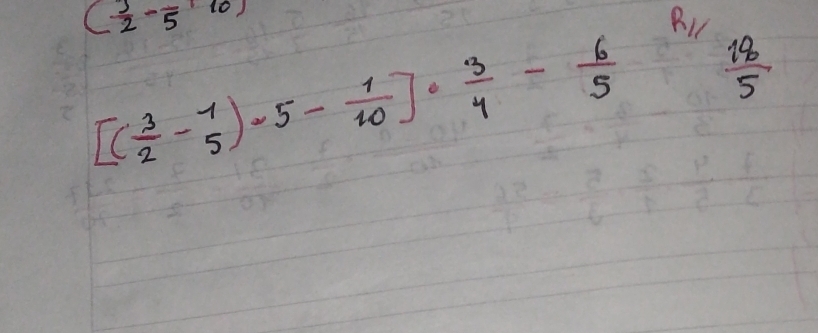 (3/2 - 1/5 · 10)
R//
[(3/2 - 1/5) · 5 - 1/10] · 3/4 - 6/5 18/5